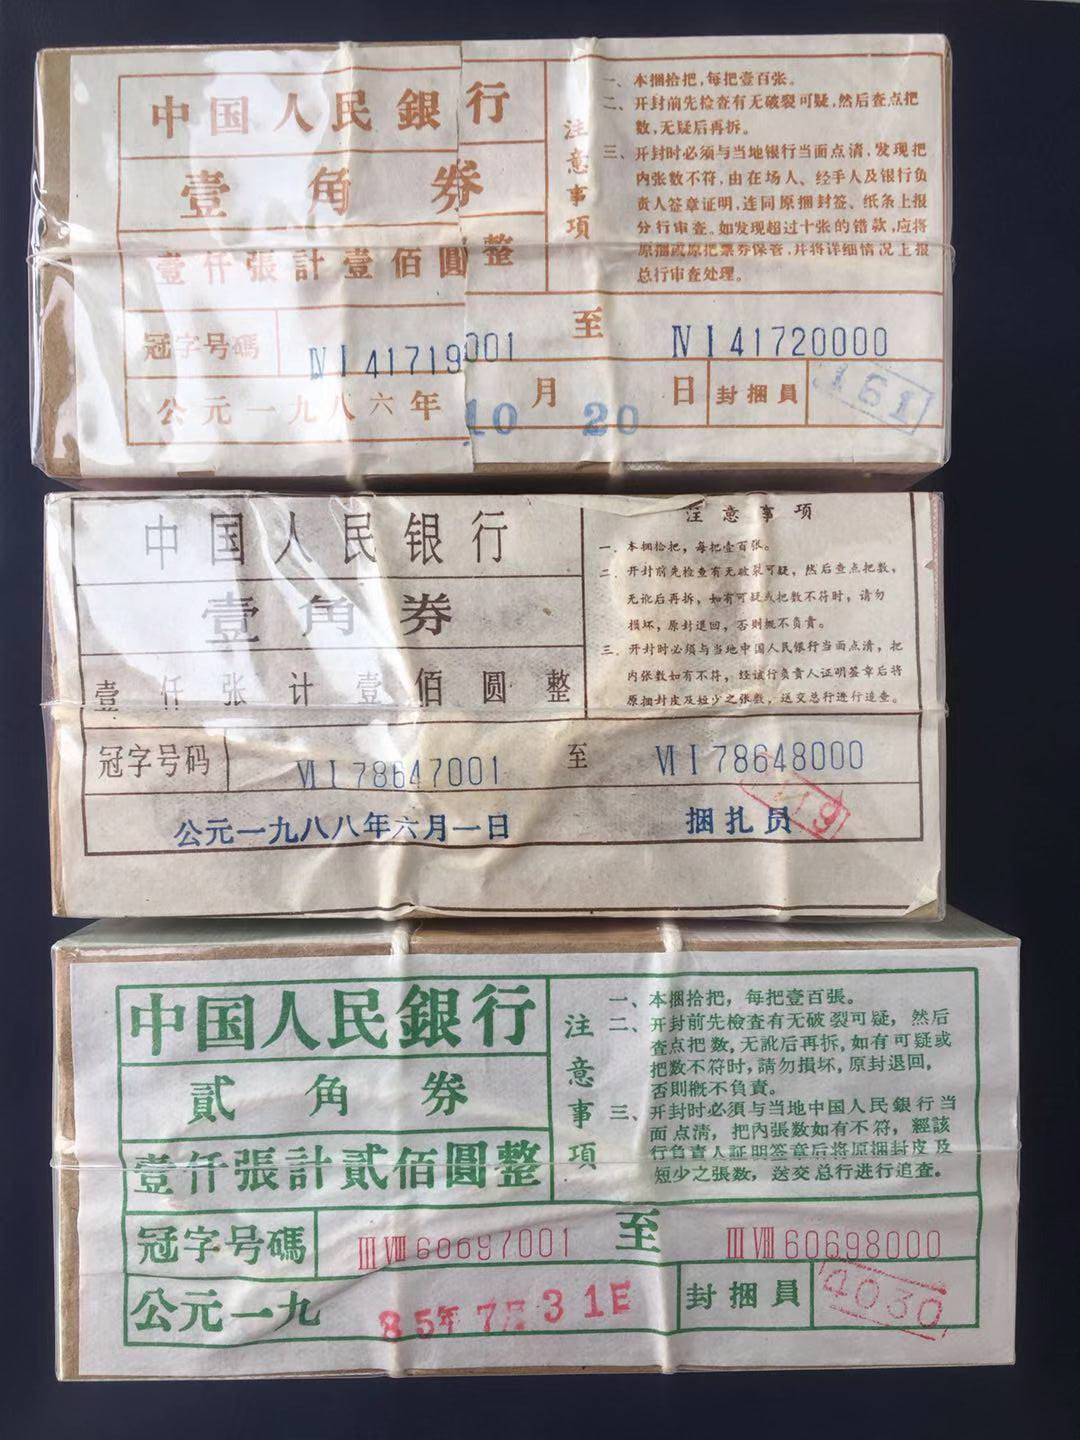 中国人民銀行
壹角券
壹仟張計壹佰圓整
注意事項
一、本捆拾把,每把壹百张。
二、开封前先检查有无破裂可疑,然后查点把
数,无疑后再拆。
三、开封时必须与当地银行当面点清,发现把
内张数不符,由在场人、经手人及银行负
责人签章证明,连同原捆封签、纸条上报
分行审查。如发现超过十张的错款,应将
原捆或原把票券保管,并将详细情况上报
总行审查处理。
冠字号碼 ⅣⅠ41719001 至 ⅣⅠ41720000
公元一九八六年 10 月 20 日 封捆員 161
中国人民银行
壹角券
壹仟张计壹佰圆整
注意事项
一、本捆拾把,每把壹百张。
二、开封前先检查有无破裂可疑,然后查点把数,
无讹后再拆,如有可疑或把数不符时,请勿
损坏,原封退回,否则概不负责。
三、开封时必须与当地中国人民银行当面点清,把
内张数如有不符,经该行负责人证明签章后将
原捆封皮及短少之张数,送交总行进行追查。
冠字号码 ⅥⅠ78647001 至 ⅥⅠ78648000
公元一九八八年六月一日 捆扎员
中国人民銀行
貳角券
壹仟張計貳佰圓整
注意事項
一、本捆拾把,每把壹百張。
二、开封前先檢查有无破裂可疑,然后
查点把数,无訛后再拆,如有可疑或
把数不符时,請勿損坏,原封退回,
否則概不負責。
三、开封时必須与当地中国人民銀行当
面点清,把內張数如有不符,經該
行負責人証明签章后将原捆封皮及
短少之張数,送交总行进行追查。
冠字号碼 ⅢⅧ60697001 至 ⅢⅧ60698000
公元一九85年7月31日 封捆員 4030